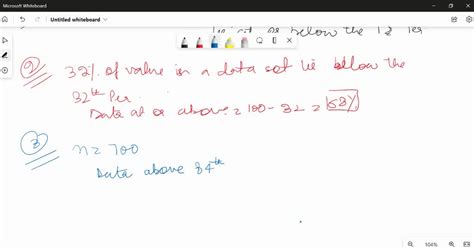 Microsoft Whiteboard
Untitled whiteboard
or below the 12 Per
② 32% of value in a data set lie below the
32th Per
Data at or above = 100 - 32 = 68%
③ n = 700
Data above 84th
104%